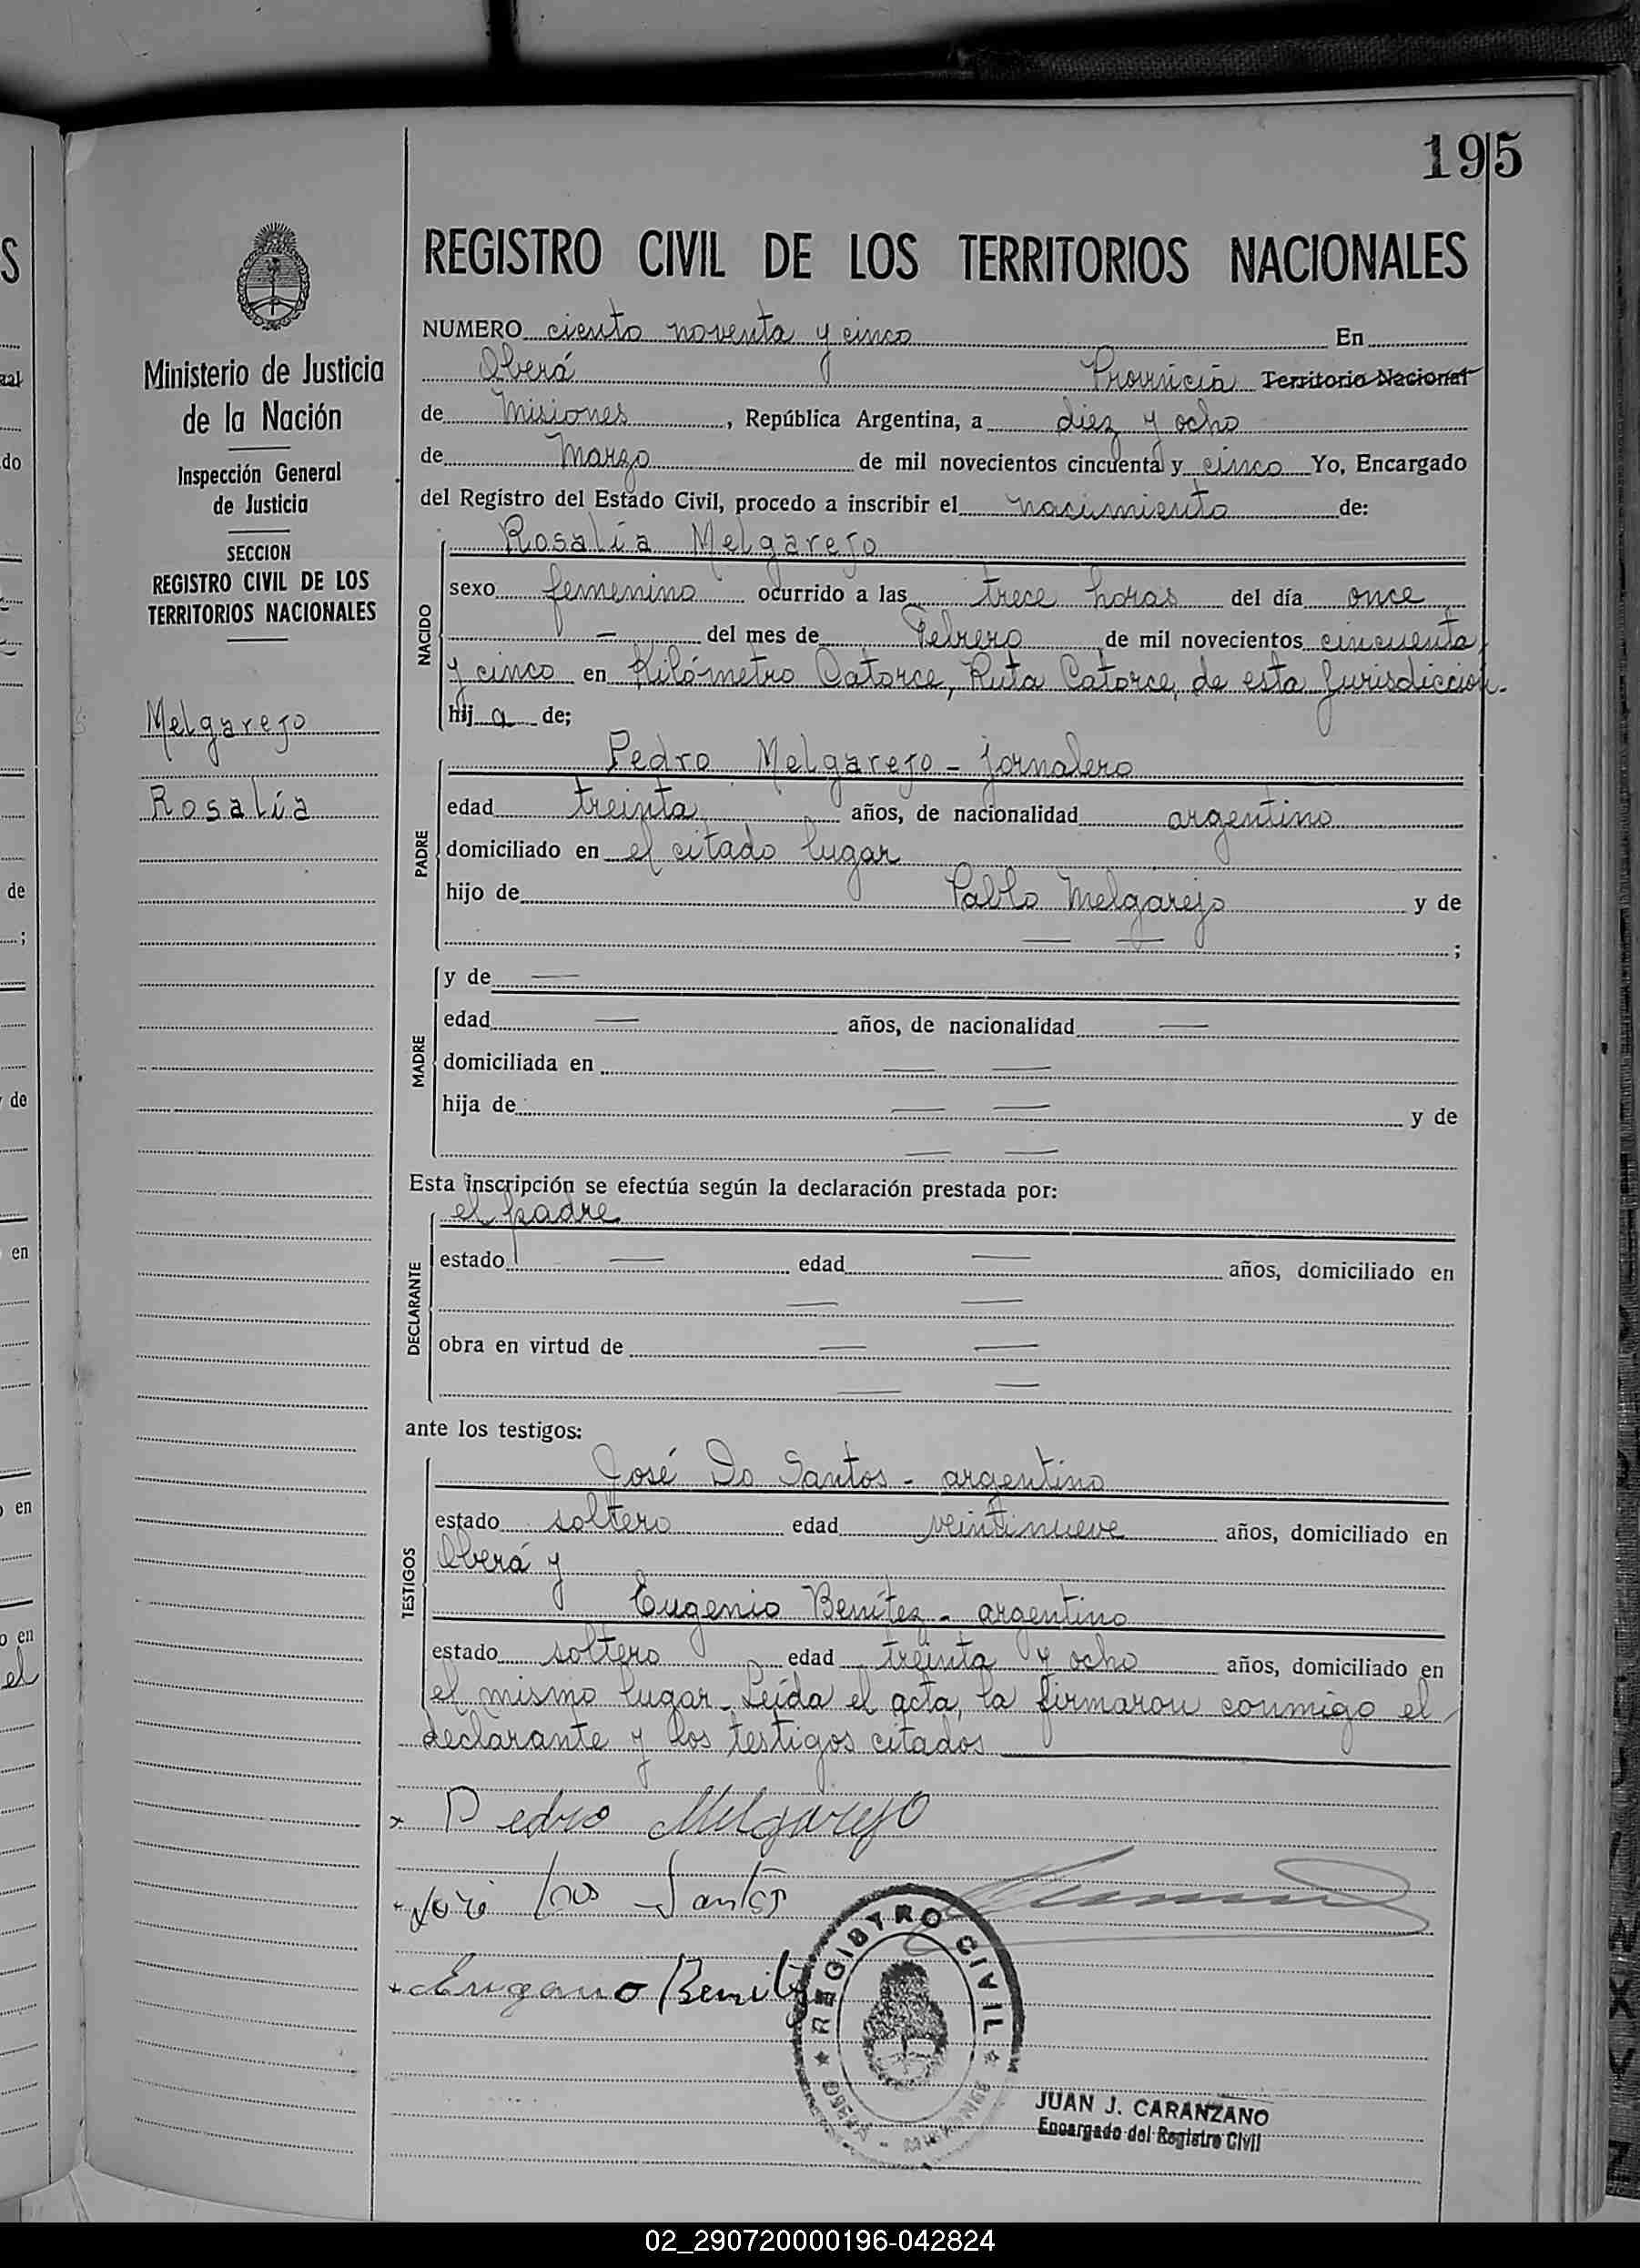 195
REGISTRO CIVIL DE LOS TERRITORIOS NACIONALES
Ministerio de Justicia
de la Nación
Inspección General
de Justicia
SECCION
REGISTRO CIVIL DE LOS
TERRITORIOS NACIONALES
Melgarejo
Rosalía
NUMERO ciento noventa y cinco En
Oberá Provincia Territorio Nacional
de Misiones, República Argentina, a diez y ocho
de Marzo de mil novecientos cincuenta y cinco Yo, Encargado
del Registro del Estado Civil, procedo a inscribir el nacimiento de:
NACIDO
Rosalía Melgarejo
sexo femenino ocurrido a las trece horas del día once
— del mes de Febrero de mil novecientos cincuenta
y cinco en Kilómetro Catorce, Ruta Catorce, de esta Jurisdicción.
hij a de;
PADRE
Pedro Melgarejo - jornalero
edad treinta años, de nacionalidad argentino
domiciliado en el citado lugar
hijo de Pablo Melgarejo y de
— — ;
MADRE
y de —
edad — años, de nacionalidad —
domiciliada en — —
hija de — — y de
— —
Esta inscripción se efectúa según la declaración prestada por:
DECLARANTE
el padre
estado — edad — años, domiciliado en
— —
obra en virtud de — —
— —
ante los testigos:
TESTIGOS
José Do Santos - argentino
estado soltero edad veintinueve años, domiciliado en
Oberá y
Eugenio Benítez - argentino
estado soltero edad treinta y ocho años, domiciliado en
el mismo lugar - Leída el acta, la firmaron conmigo el
declarante y los testigos citados
Pedro Melgarejo
Santos
Benitez
REGISTRO CIVIL
OBERÁ - MISIONES
JUAN J. CARANZANO
Encargado del Registro Civil
02_290720000196-042824